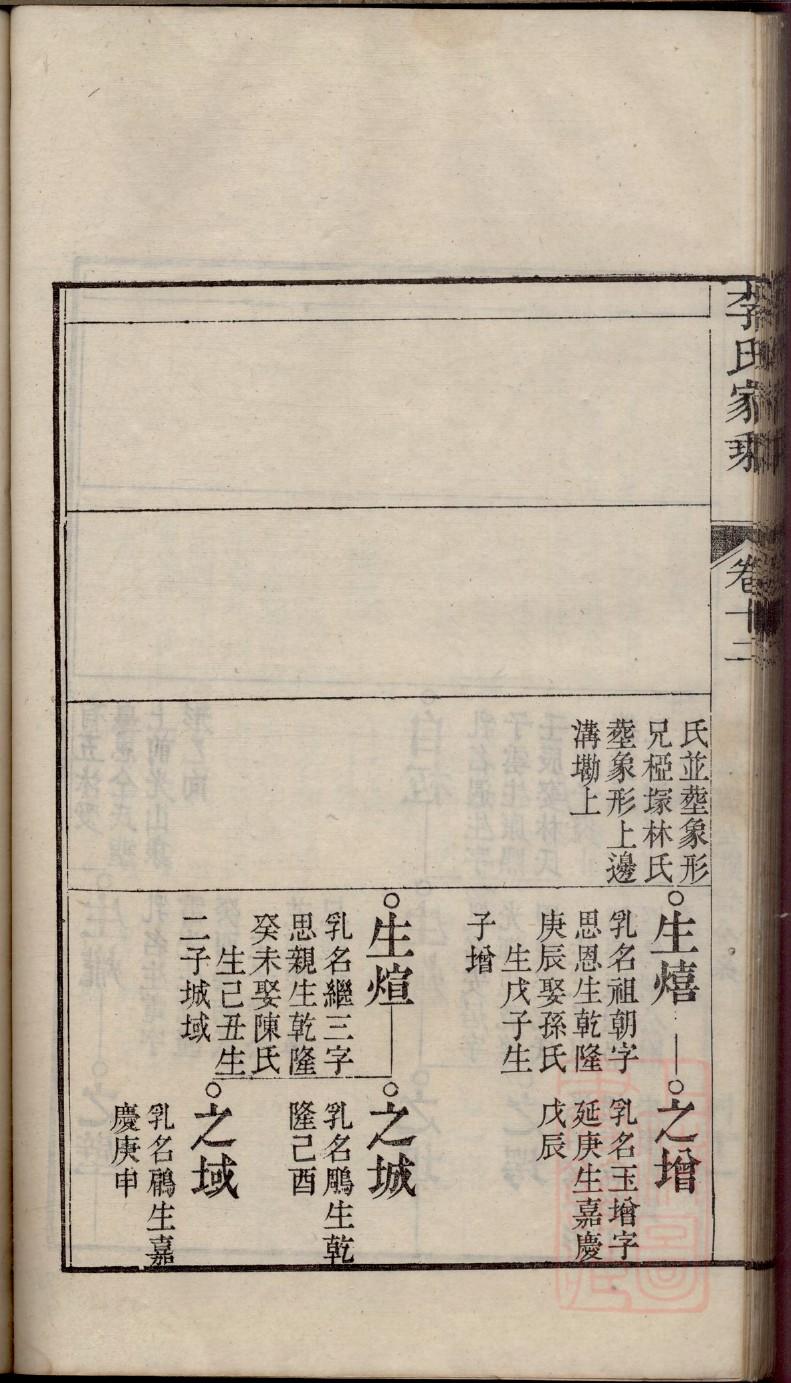 李氏家乘
卷十二
氏並塟象形
兄椏塚林氏
塟象形上邊
溝墈上
生熺
乳名祖朝字
思恩生乾隆
庚辰娶孫氏
生戊子生
子增
之增
乳名玉增字
延庚生嘉慶
戊辰
生煊
乳名繼三字
思親生乾隆
癸未娶陳氏
生己丑生
二子城域
之城
乳名鵰生乾
隆己酉
之域
乳名鵩生嘉
慶庚申